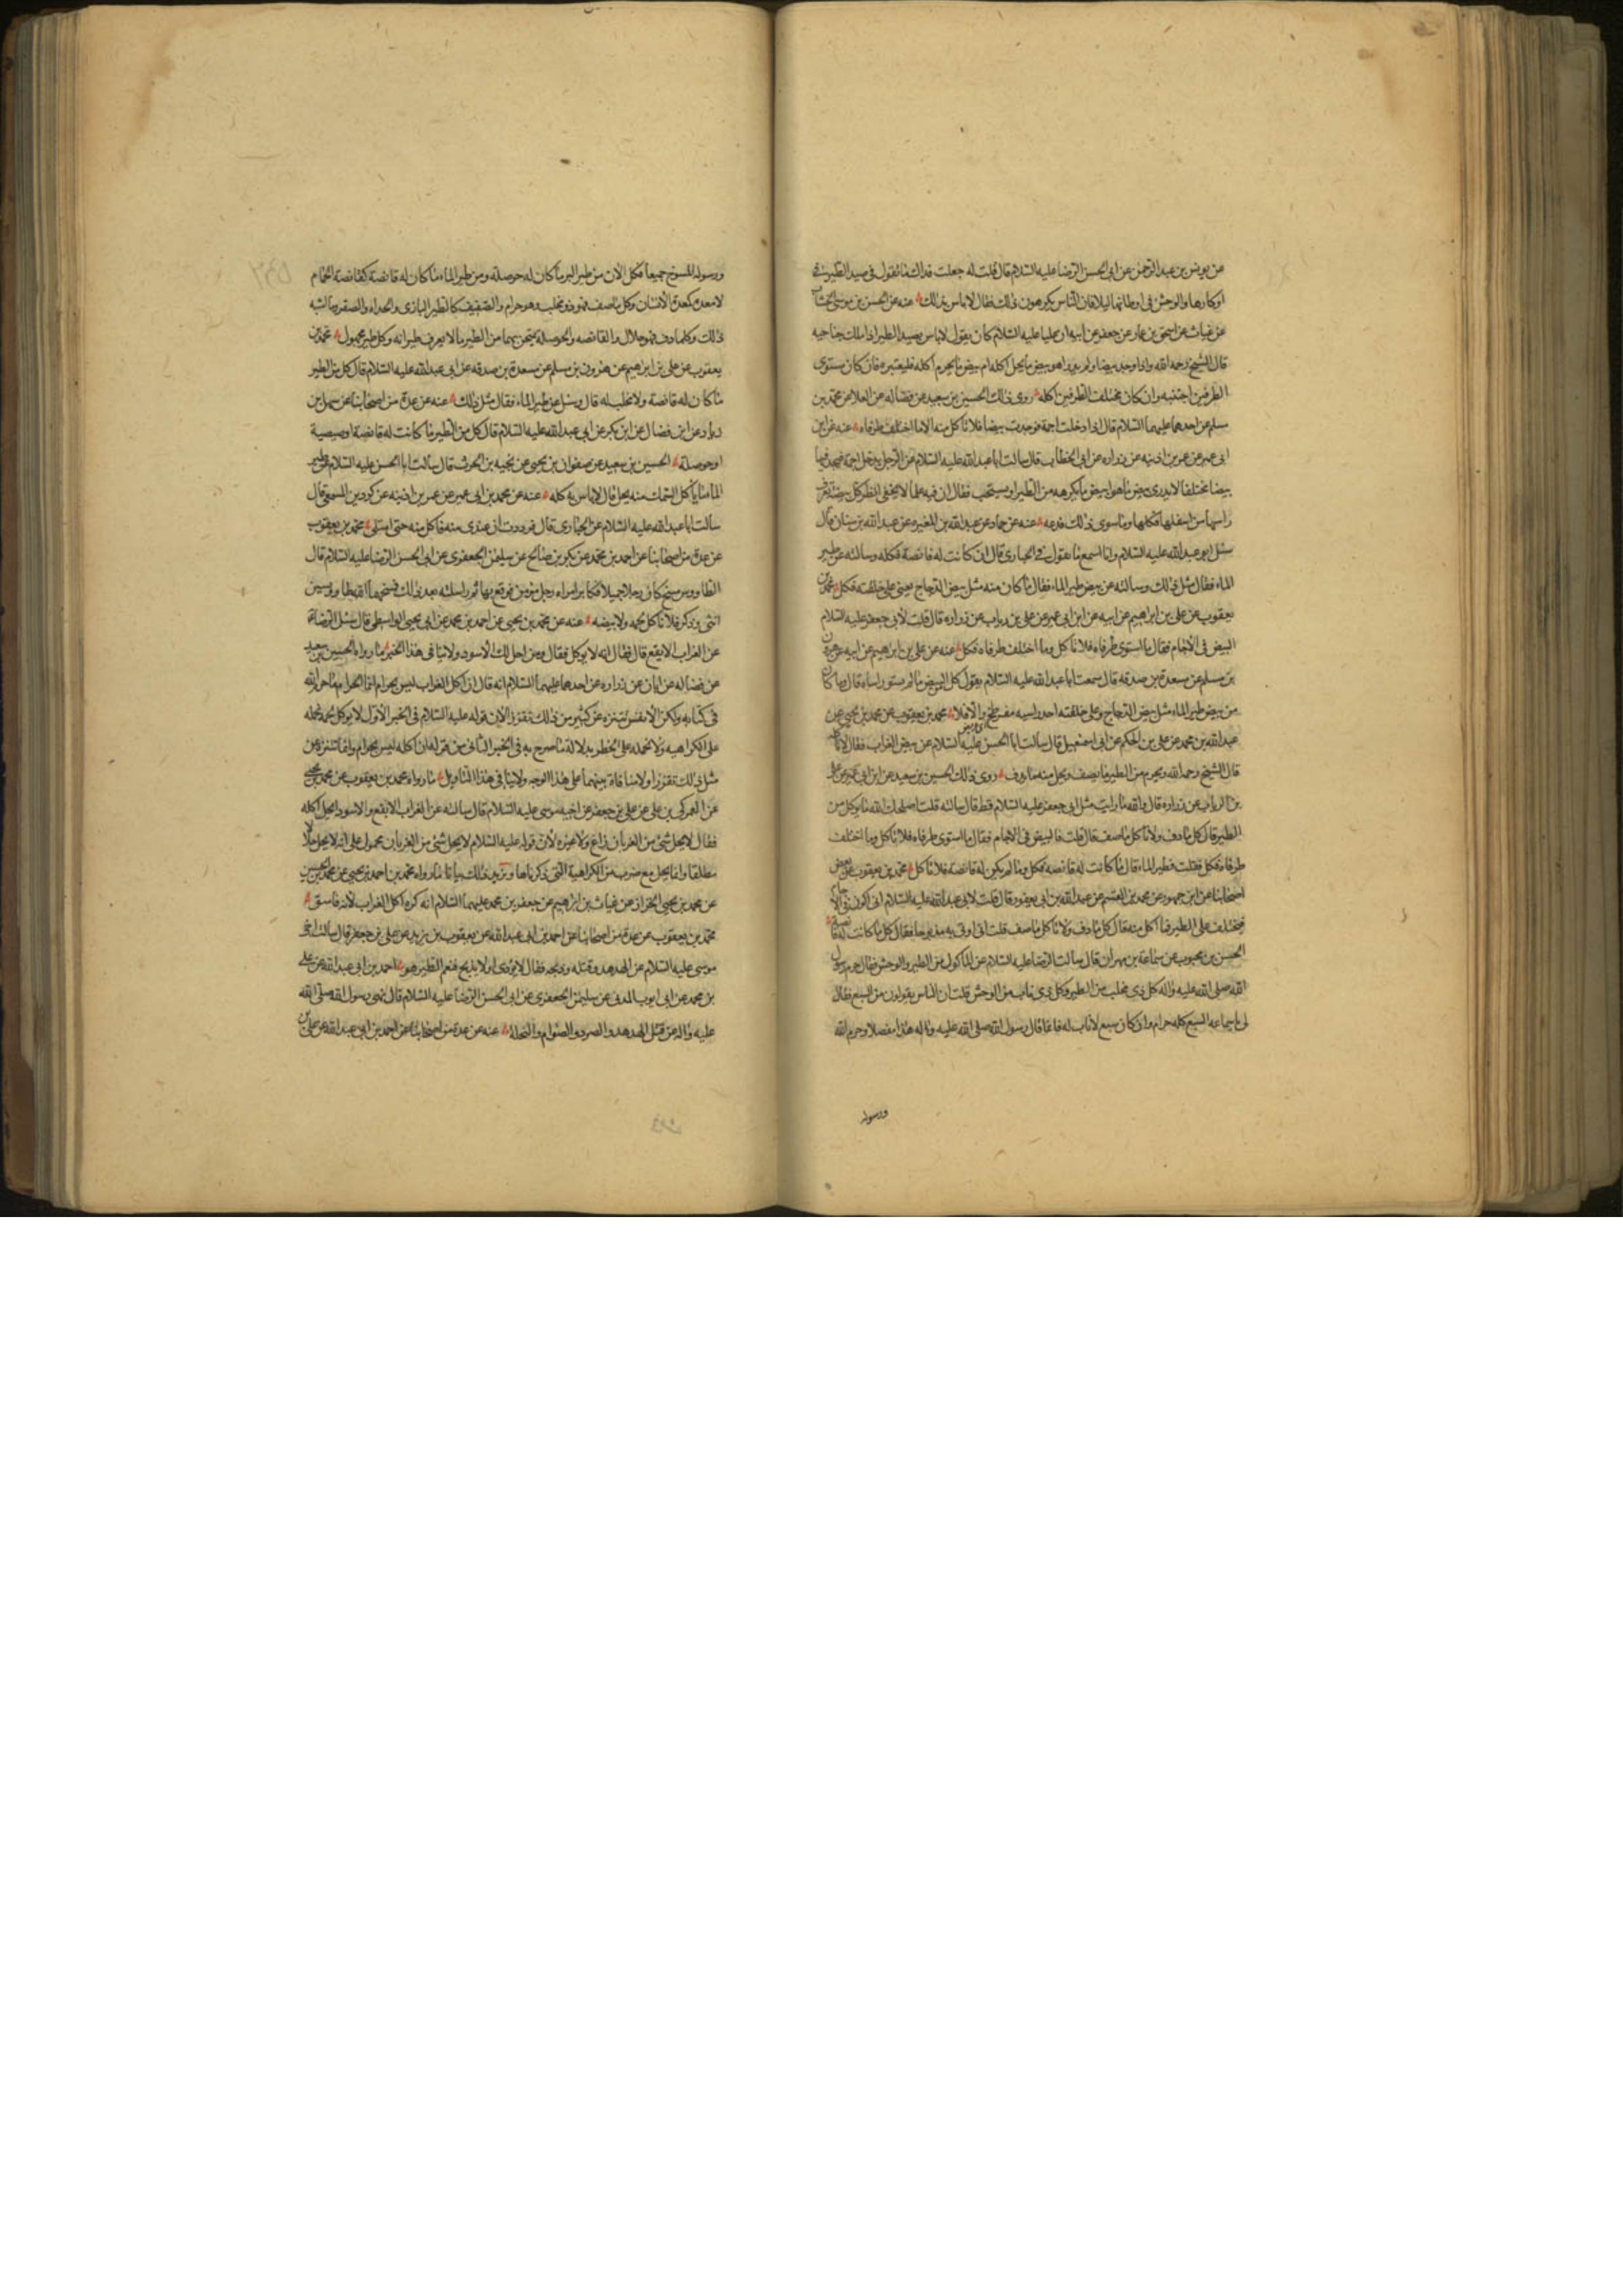 عن يونس بن عبد الرحمن عن ابى الحسن الرضا عليه السلام قال قلت له جعلت فداك ما تقول فى صيد الطير فى
اوكارها والوحش فى اوطانها ليلا فان الناس يكرهون ذلك فقال لا باس بذلك عنه عن الحسن بن موسى الخشاب
عن غياث عن اسحق بن عمار عن جعفر عن ابيه ان عليا عليه السلام كان يقول لا باس بصيد الطير اذا ملك جناحيه
قال الشيخ رحمه الله واذا وجد بيضا ولم يدر اهو بيض ما يحل اكله ام بيض ما يحرم اكله فليعتبره فان كان مستوى
الطرفين اجتنبه وان كان مختلف الطرفين اكله روى ذلك الحسين بن سعيد عن فضاله عن العلا عن محمد بن
مسلم عن احدهما عليهما السلام قال اذا دخلت اجمة فوجدت بيضا فلا تاكل منه الا ما اختلف طرفاه عنه عن ابن
ابى عمير عن عمر بن اذينه عن زراره عن ابى الخطاب قال سالت ابا عبد الله عليه السلام عن الرجل يدخل اجمة فيجد فيها
بيضا مختلفا لا يدرى بيض ما هو ابيض ما يكره من الطير او يستحب فقال ان فيه علما لا يخفى انظر كل بيضة تعرف
راسها من اسفلها فكلها وما سوى ذلك فدعه عنه عن حماد عن عبد الله بن المغيره عن عبد الله بن سنان قال
سئل ابو عبد الله عليه السلام وانا اسمع ما تقول فى الحبارى قال ان كانت له قانصة فكله وسالته عن طير
الماء فقال مثل ذلك وسالته عن بيض طير الماء فقال ما كان منه مثل بيض الدجاج يعنى على خلقته فكل محمد بن
يعقوب عن على بن ابراهيم عن ابيه عن ابن ابى عمير عن على بن رياب عن زراره قال قلت لابى جعفر عليه السلام
البيض فى الاجام فقال ما استوى طرفاه فلا تاكل وما اختلف طرفاه فكل عنه عن على بن ابراهيم عن ابيه عن هرون
بن مسلم عن مسعدة بن صدقه قال سمعت ابا عبد الله عليه السلام يقول كل البيض ما لم يستو راساه قال وما كان
من بيض طير الماء مثل بيض الدجاج وعلى خلقته احد راسيه مفرطح والا فلا محمد بن يعقوب عن محمد بن يحيى عن
عبد الله بن محمد عن على بن الحكم عن ابى اسمعيل قال سالت ابا الحسن عليه السلام عن بيض الغراب فقال لا تاكله
قال الشيخ رحمه الله ويحرم من الطير ما يصف ويحل منه ما يدف روى ذلك الحسين بن سعيد عن ابن ابى عمير عن على
بن الرياب عن زراره قال والله ما رايت مثل ابى جعفر عليه السلام قط قال سالته قلت اصلحك الله ما يوكل من
الطير قال كل ما دف ولا تاكل ما صف قال قلت فالبيض فى الاجام فقال ما استوى طرفاه فلا تاكل وما اختلف
طرفاه فكل فقلت فطير الماء قال ما كانت له قانصه فكل وما لم يكن له قانصة فلا تاكل محمد بن يعقوب عن بعض
اصحابنا عن ابن جمهور عن محمد بن القسم عن عبد الله بن ابى يعفور قال قلت لابى عبد الله عليه السلام انى اكون فى الاجام
فيختلف على الطير فما اكل منه فقال كل ما دف ولا تاكل ما صف قلت انى اوتى به مذبوحا فقال كل ما كانت له قانصة
الحسن بن محبوب عن سماعة بن مهران قال سالت الرضا عليه السلام عن الماكول من الطير والوحش فقال حرم رسول
الله صلى الله عليه واله كل ذى مخلب من الطير وكل ذى ناب من الوحش قلت ان الناس يقولون من السبع فقال
لى يا سماعه السبع كله حرام وان كان سبع لا ناب له فانما قال رسول الله صلى الله عليه واله هذا مفصلا وحرم الله
ورسوله
ورسوله المسوخ جميعا فكل الان من طير البر ما كان له حوصلة ومن طير الماء ما كان له قانصة كقانصة الحمام
لا معدة كمعدة الانسان وكل ما صف فهو ذو مخلب وهو حرام والصفيف كما تطير البازى والحداه والصقر وما اشبه
ذلك وكلما دف فهو حلال والقانصه والحوصلة يمتحن بهما من الطير ما لا يعرف طيرانه وكل طير مجهول محمد بن
يعقوب عن على بن ابراهيم عن هرون بن مسلم عن مسعدة بن صدقه عن ابى عبد الله عليه السلام قال كل من الطير
ما كان له قانصة ولا مخلب له قال وسئل عن طير الماء فقال مثل ذلك عنه عن عدة من اصحابنا عن سهل بن
زياد عن ابن فضال عن ابن بكير عن ابى عبد الله عليه السلام قال كل من الطير ما كانت له قانصة او صيصية
او حوصلة الحسين بن سعيد عن صفوان بن يحيى عن نجيه بن الحرث قال سالت ابا الحسن عليه السلام عن طير
الماء ما ياكل السمك منه يحل قال لا باس به كله عنه عن محمد بن ابى عمير عن عمر بن اذينه عن كردين المسمعى قال
سالت ابا عبد الله عليه السلام عن الحبارى قال فوددت ان عندى منه فاكل منه حتى امتلى محمد بن يعقوب
عن عدة من اصحابنا عن احمد بن محمد عن بكر بن صالح عن سليمن الجعفرى عن ابى الحسن الرضا عليه السلام قال
الطاووس مسخ كان رجلا جميلا فكابر امراه رجل مؤمن فوقع بها ثم راسلته بعد ذلك فمسخهما الله طاووسين
انثى وذكر فلا تاكل لحمه ولا بيضه عنه عن محمد بن يحيى عن احمد بن محمد عن ابى يحيى الواسطى قال سئل الرضا ع
عن الغراب الابقع قال فقال انه لا يوكل فقال ومن احل لك الاسود ولا ينافى هذا الخبر ما رواه الحسين بن سعيد
عن فضاله عن ابان عن زراره عن احدهما عليهما السلام انه قال ان اكل الغراب ليس بحرام انما الحرام ما حرم الله
فى كتابه ولكن الانفس تتنزه عن كثير من ذلك تقززا لان قوله عليه السلام فى الخبر الاول لا يوكل لحمه نحمله
على الكراهيه ولا نحمله على الحظر بدلالة ما صرح به فى الخبر الثانى من قوله ان اكله ليس بحرام وانما تتنزه عن
مثل ذلك تقززا ولا منافاة بينهما على هذا الوجه ولا ينافى هذا التاويل ما رواه محمد بن يعقوب عن محمد بن يحيى
عن العمركى بن على عن على بن جعفر عن اخيه موسى عليه السلام قال سالته عن الغراب الابقع والاسود ايحل اكله
فقال لا يحل شئ من الغربان زاغ ولا غيره لان قوله عليه السلام لا يحل شئ من الغربان محمول على انه لا يحل حلالا
مطلقا وانما يحل مع ضرب من الكراهية التى ذكرناها ويزيد ذلك بيانا ما رواه محمد بن احمد بن يحيى عن محمد بن الحسين
عن محمد بن يحيى الخزاز عن غياث بن ابرهيم عن جعفر بن محمد عليهما السلام انه كره اكل الغراب لانه فاسق
محمد بن يعقوب عن عدة من اصحابنا عن احمد بن ابى عبد الله عن يعقوب بن يزيد عن على بن جعفر قال سالت اخى
موسى عليه السلام عن الهدهد وقتله وذبحه فقال لا يؤذى ولا يذبح فنعم الطير هو احمد بن ابى عبد الله عن على
بن محمد عن ابى ايوب المدنى عن سليمن الجعفرى عن ابى الحسن الرضا عليه السلام قال نهى رسول الله صلى الله
عليه واله عن قتل الهدهد والصرد والصوام والنحلة عنه عن عدة من اصحابنا عن احمد بن ابى عبد الله عن على بن